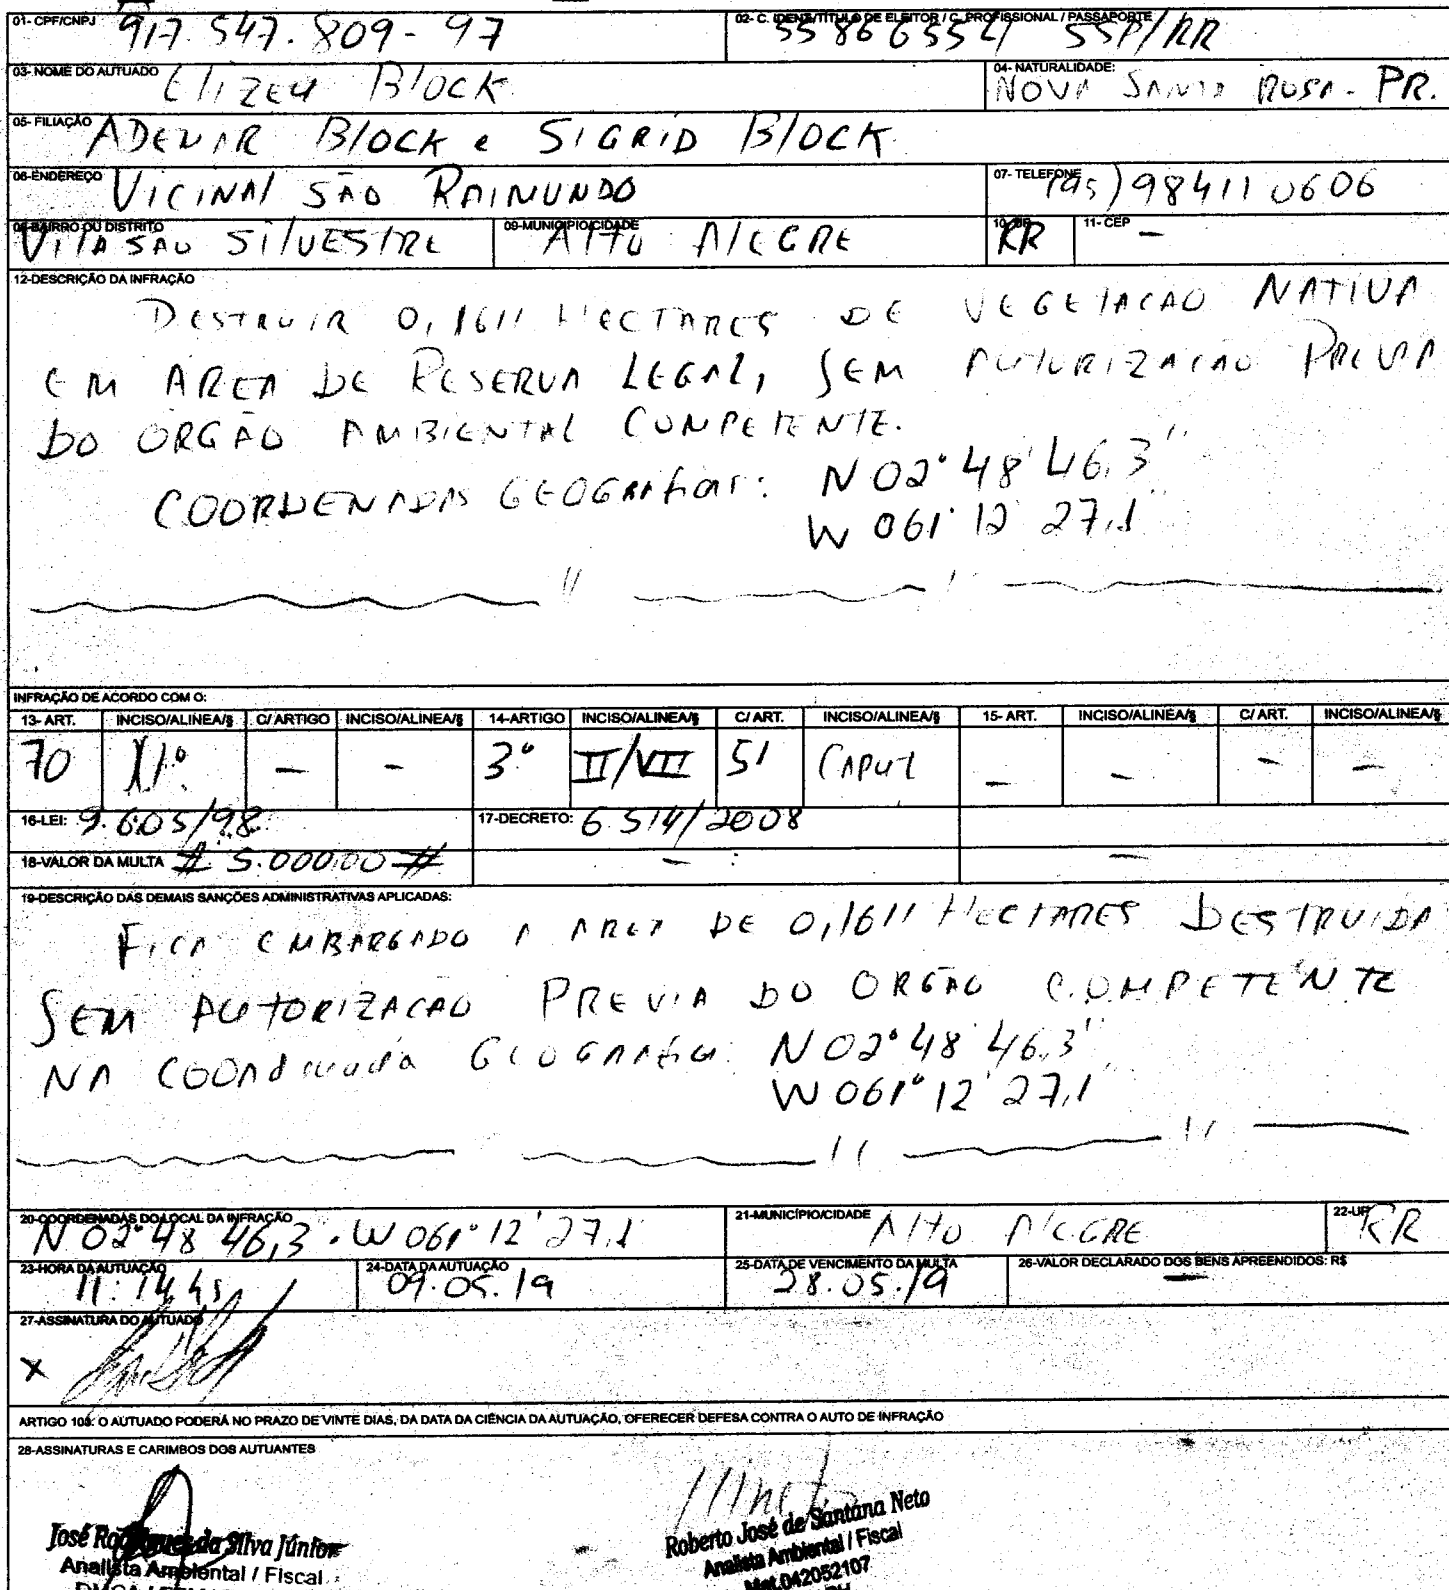 01- CPF/CNPJ 917.547.809-97
02- C. IDENT/TÍTULO DE ELEITOR / C. PROFISSIONAL / PASSAPORTE SSP/RR
03- NOME DO AUTUADO Elizeu Block
04- NATURALIDADE: NOVA SANTA ROSA - PR.
05- FILIAÇÃO ADEMAR BLOCK e SIGRID BLOCK
06-ENDEREÇO VICINAL SÃO RAIMUNDO
07- TELEFONE (95) 98411 0606
08-BAIRRO OU DISTRITO VILA SAO SILVESTRE
09-MUNICIPIO/CIDADE ALTO ALEGRE
10-UF RR
11- CEP —
12-DESCRIÇÃO DA INFRAÇÃO
DESTRUIR 0,1611 HECTARES DE VEGETACAO NATIVA
EM AREA DE RESERVA LEGAL, SEM AUTORIZACAO PREVIA
DO ORGÃO AMBIENTAL COMPETENTE.
COORDENADAS GEOGRAFICAS: N 02° 48' 46,3''
W 061° 12' 27,1
INFRAÇÃO DE ACORDO COM O:
13- ART. INCISO/ALINEA/§ C/ ARTIGO INCISO/ALINEA/§ 14-ARTIGO INCISO/ALINEA/§ C/ ART. INCISO/ALINEA/§ 15- ART. INCISO/ALINEA/§ C/ ART. INCISO/ALINEA/§
70 — - 3° II/VII 51 CAPUT — — — —
16-LEI: 9.605/98
17-DECRETO: 6 514/2008
18-VALOR DA MULTA # 5.000,00 # — —
19-DESCRIÇÃO DAS DEMAIS SANÇÕES ADMINISTRATIVAS APLICADAS:
FICA EMBARGADO A AREA DE 0,1611 HECTARES DESTRUIDA
SEM AUTORIZACAO PREVIA DO ORGÃO COMPETENTE
NA COORDENADA GEOGRAFICA: N 02° 48' 46,3''
W 061° 12' 27,1
20-COORDENADAS DO LOCAL DA INFRAÇÃO N 02° 48' 46,3 . W 061° 12' 27.1
21-MUNICÍPIO/CIDADE ALTO ALEGRE
22-UF RR
23-HORA DA AUTUAÇÃO
24-DATA DA AUTUAÇÃO 09.05.19
25-DATA DE VENCIMENTO DA MULTA 28.05.19
26-VALOR DECLARADO DOS BENS APREENDIDOS: R$ —
27-ASSINATURA DO AUTUADO
X
ARTIGO 108: O AUTUADO PODERÁ NO PRAZO DE VINTE DIAS, DA DATA DA CIÊNCIA DA AUTUAÇÃO, OFERECER DEFESA CONTRA O AUTO DE INFRAÇÃO
28-ASSINATURAS E CARIMBOS DOS AUTUANTES
José da Silva Júnior
Analista Ambiental / Fiscal
Roberto José de Santana Neto
Analista Ambiental / Fiscal
Mat.042052107